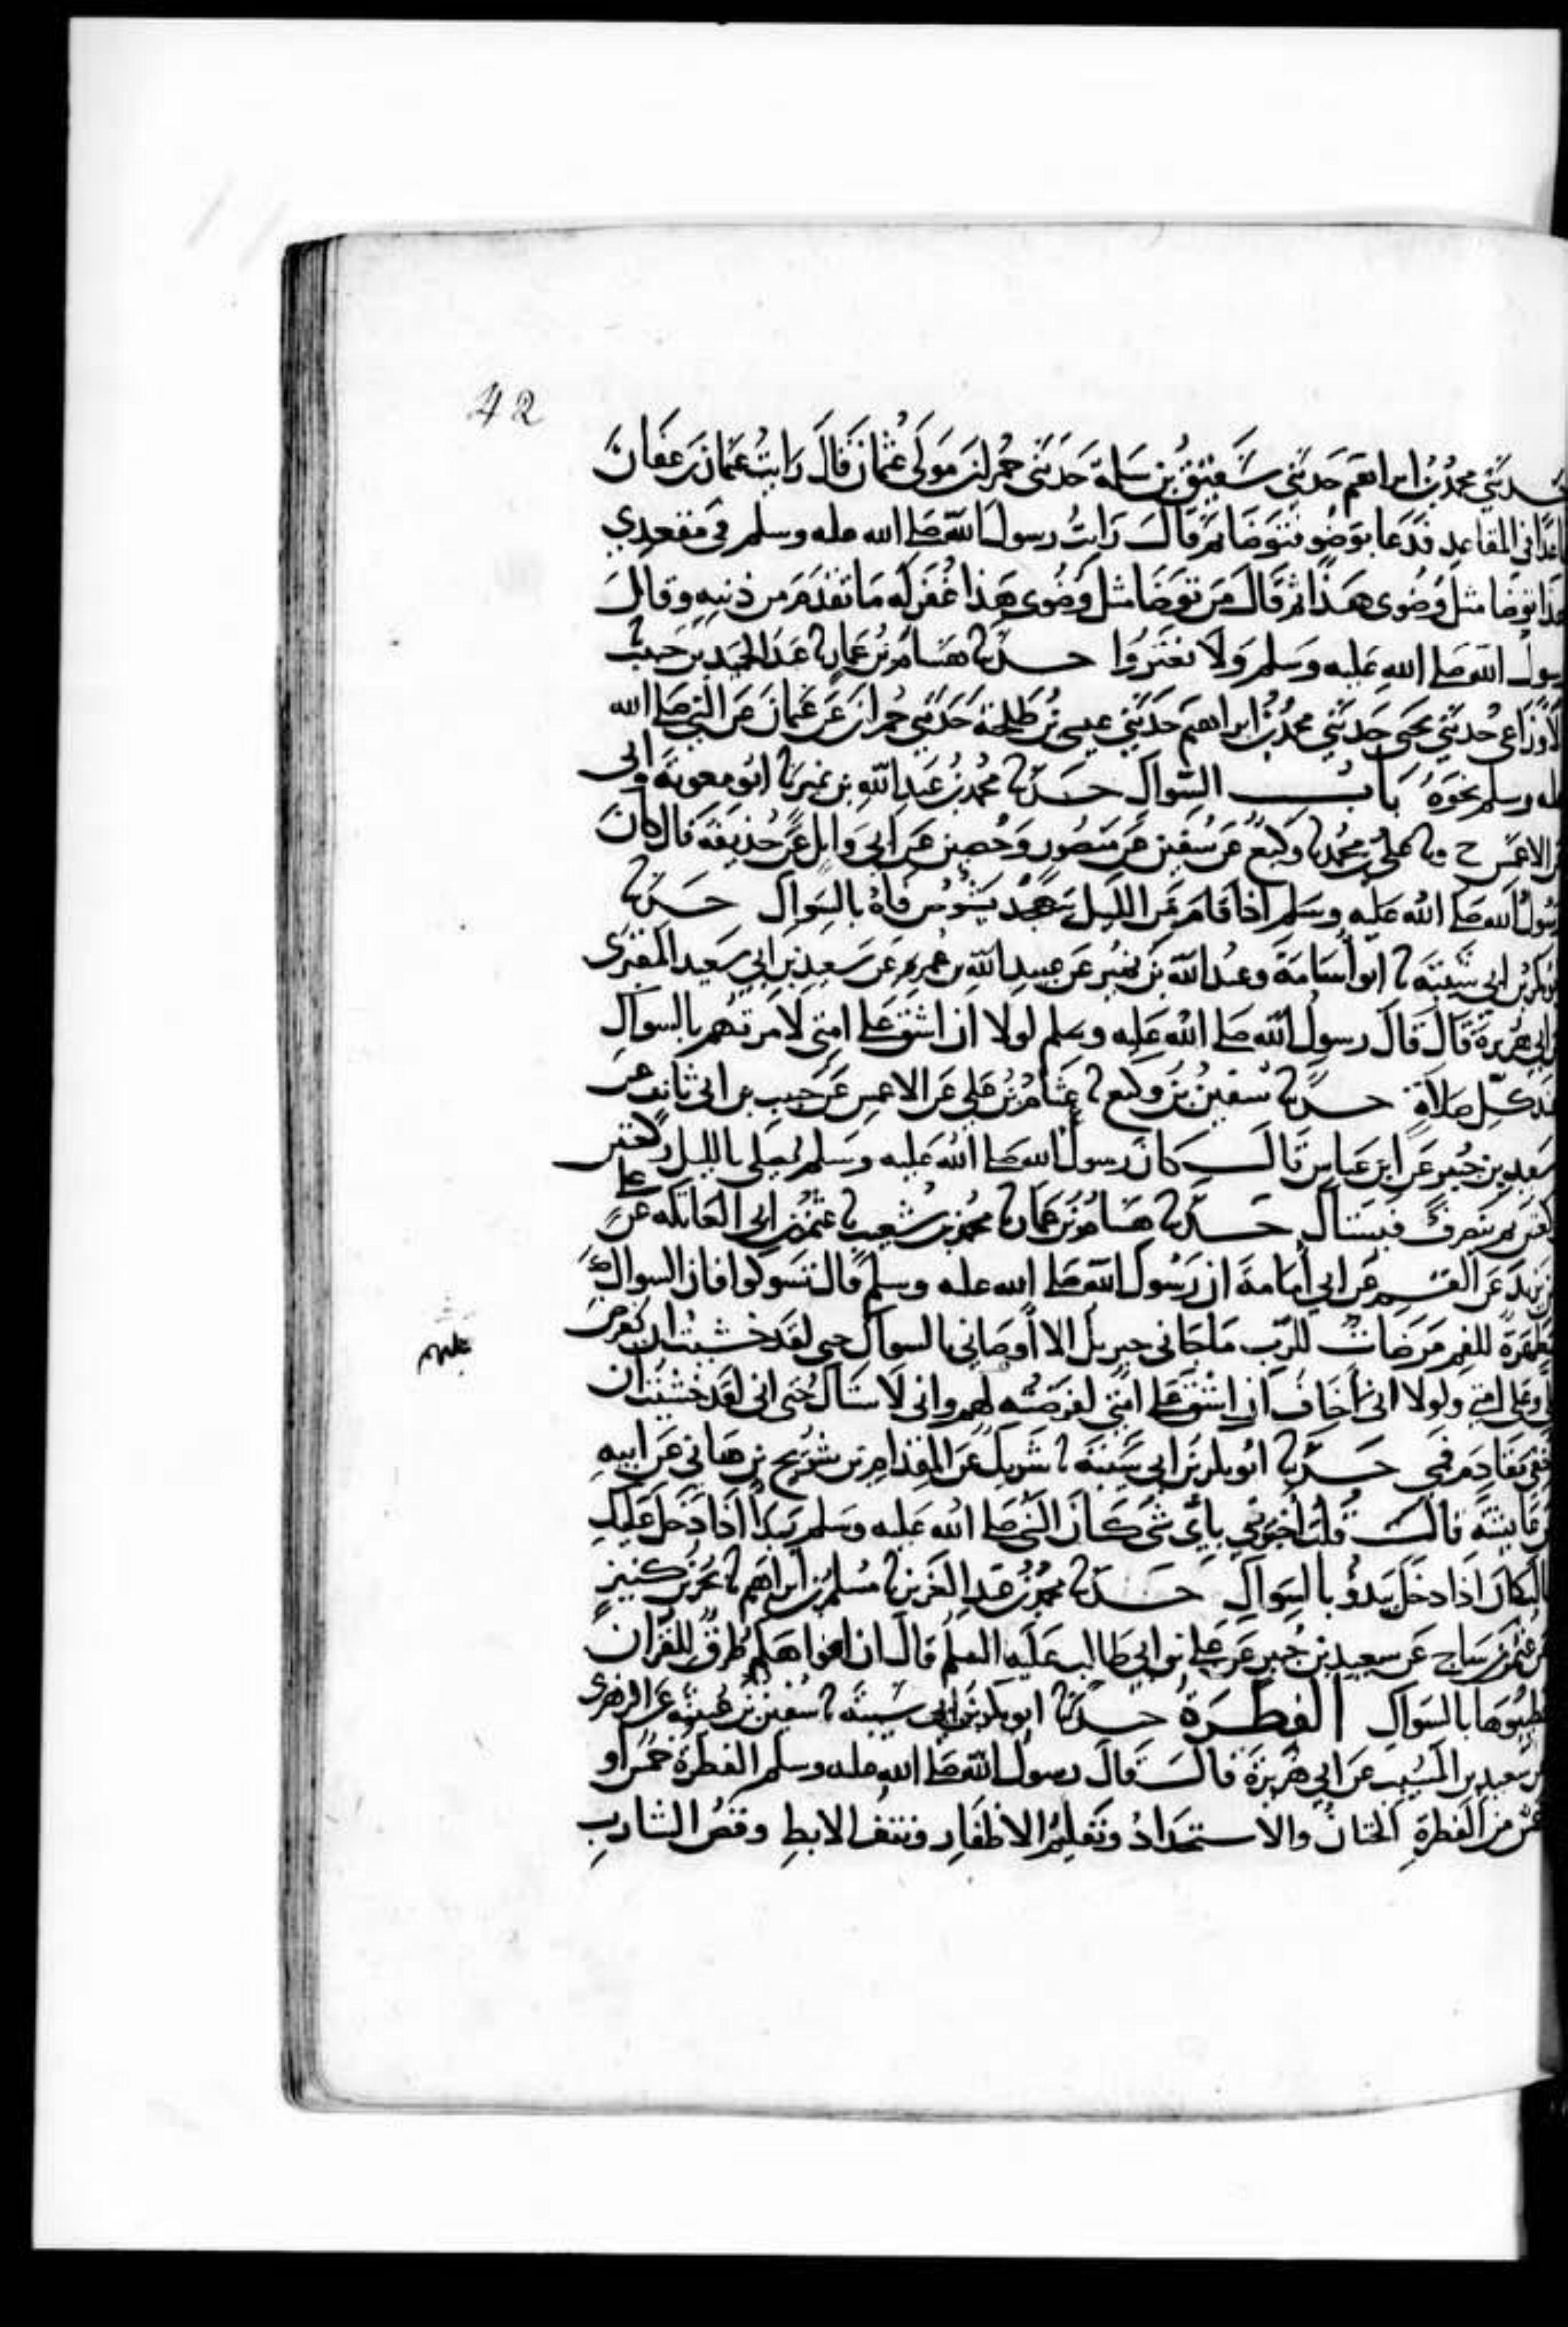 42
حدثني محمد بن ابراهيم حدثني شقيق بن سلمة حدثني حمران مولى عثمان قال رايت عثمان بن عفان
قاعدا في المقاعد فدعا بوضو فتوضا ثم قال رايت رسول الله صلى الله عليه وسلم في مقعدي
هذا توضا مثل وضوى هذا ثم قال من توضا مثل وضوى هذا غفر له ما تقدم من ذنبه وقال
رسول الله صلى الله عليه وسلم ولا تغتروا حدثنا هشام بن عمار نا عبد الحميد بن حبيب نا
الاوزاعي حدثني يحيى حدثني محمد بن ابراهيم حدثني عيسى بن طلحة حدثني حمران عن عثمان عن النبي صلى الله
عليه وسلم نحوه باب السواك حدثنا محمد بن عبد الله بن نمير نا ابو معوية وابي
عن الاعمش ح ونا علي بن محمد نا وكيع عن سفين عن منصور وحصين عن ابي وايل عن حذيفة قال كان
رسول الله صلى الله عليه وسلم اذا قام من الليل يتهجد يشوص فاه بالسواك حدثنا
ابو بكر بن ابي شيبة نا ابو اسامة وعبد الله بن نمير عن عبيد الله بن عمر عن سعيد بن ابي سعيد المقبرى
عن ابي هريرة قال قال رسول الله صلى الله عليه وسلم لولا ان اشق على امتي لامرتهم بالسواك
عند كل صلاة حدثنا سفين بن وكيع نا عثام بن علي عن الاعمش عن حبيب بن ابي ثابت عن
سعيد بن جبير عن ابن عباس قال كان رسول الله صلى الله عليه وسلم يصلي بالليل ركعتين
ركعتين ثم ينصرف فيستاك حدثنا هشام بن عمار نا محمد بن شعيب نا عثمن بن ابي العاتكه عن علي
بن يزيد عن القسم عن ابي أمامة ان رسول الله صلى الله عليه وسلم قال تسوكوا فان السواك
مطهرة للفم مرضات للرب ما جاني جبريل الا أوصاني بالسواك حتى لقد خشيت ان يفرض
علي وعلى امتي ولولا اني أخاف ان اشق على امتي لفرضته لهم واني لاستاك حتى اني لقد خشيت ان
عليهم
احفي مقادم فمي حدثنا ابو بكر بن ابي شيبة نا شريك عن المقدام بن شريح بن هاني عن ابيه
عن عايشة قال قلت أخبرني بأي شي كان النبي صلى الله عليه وسلم يبدأ اذا دخل عليك
قالت كان اذا دخل يبدؤ بالسواك حدثنا محمد بن عبد العزيز نا مسلم بن ابراهيم نا بحر بن كنيز
عن عثمن بن ساج عن سعيد بن جبير عن علي بن ابي طالب عليه السلم قال ان افواهكم طرق للقران
فطيبوها بالسواك الفطرة حدثنا ابو بكر بن ابي شيبة نا سفين بن عيينة عن الزهرى
عن سعيد بن المسيب عن ابي هريرة قال قال رسول الله صلى الله عليه وسلم الفطرة خمس او
خمس من الفطرة الختان والاستحداد وتقليم الاظفار ونتف الابط وقص الشارب